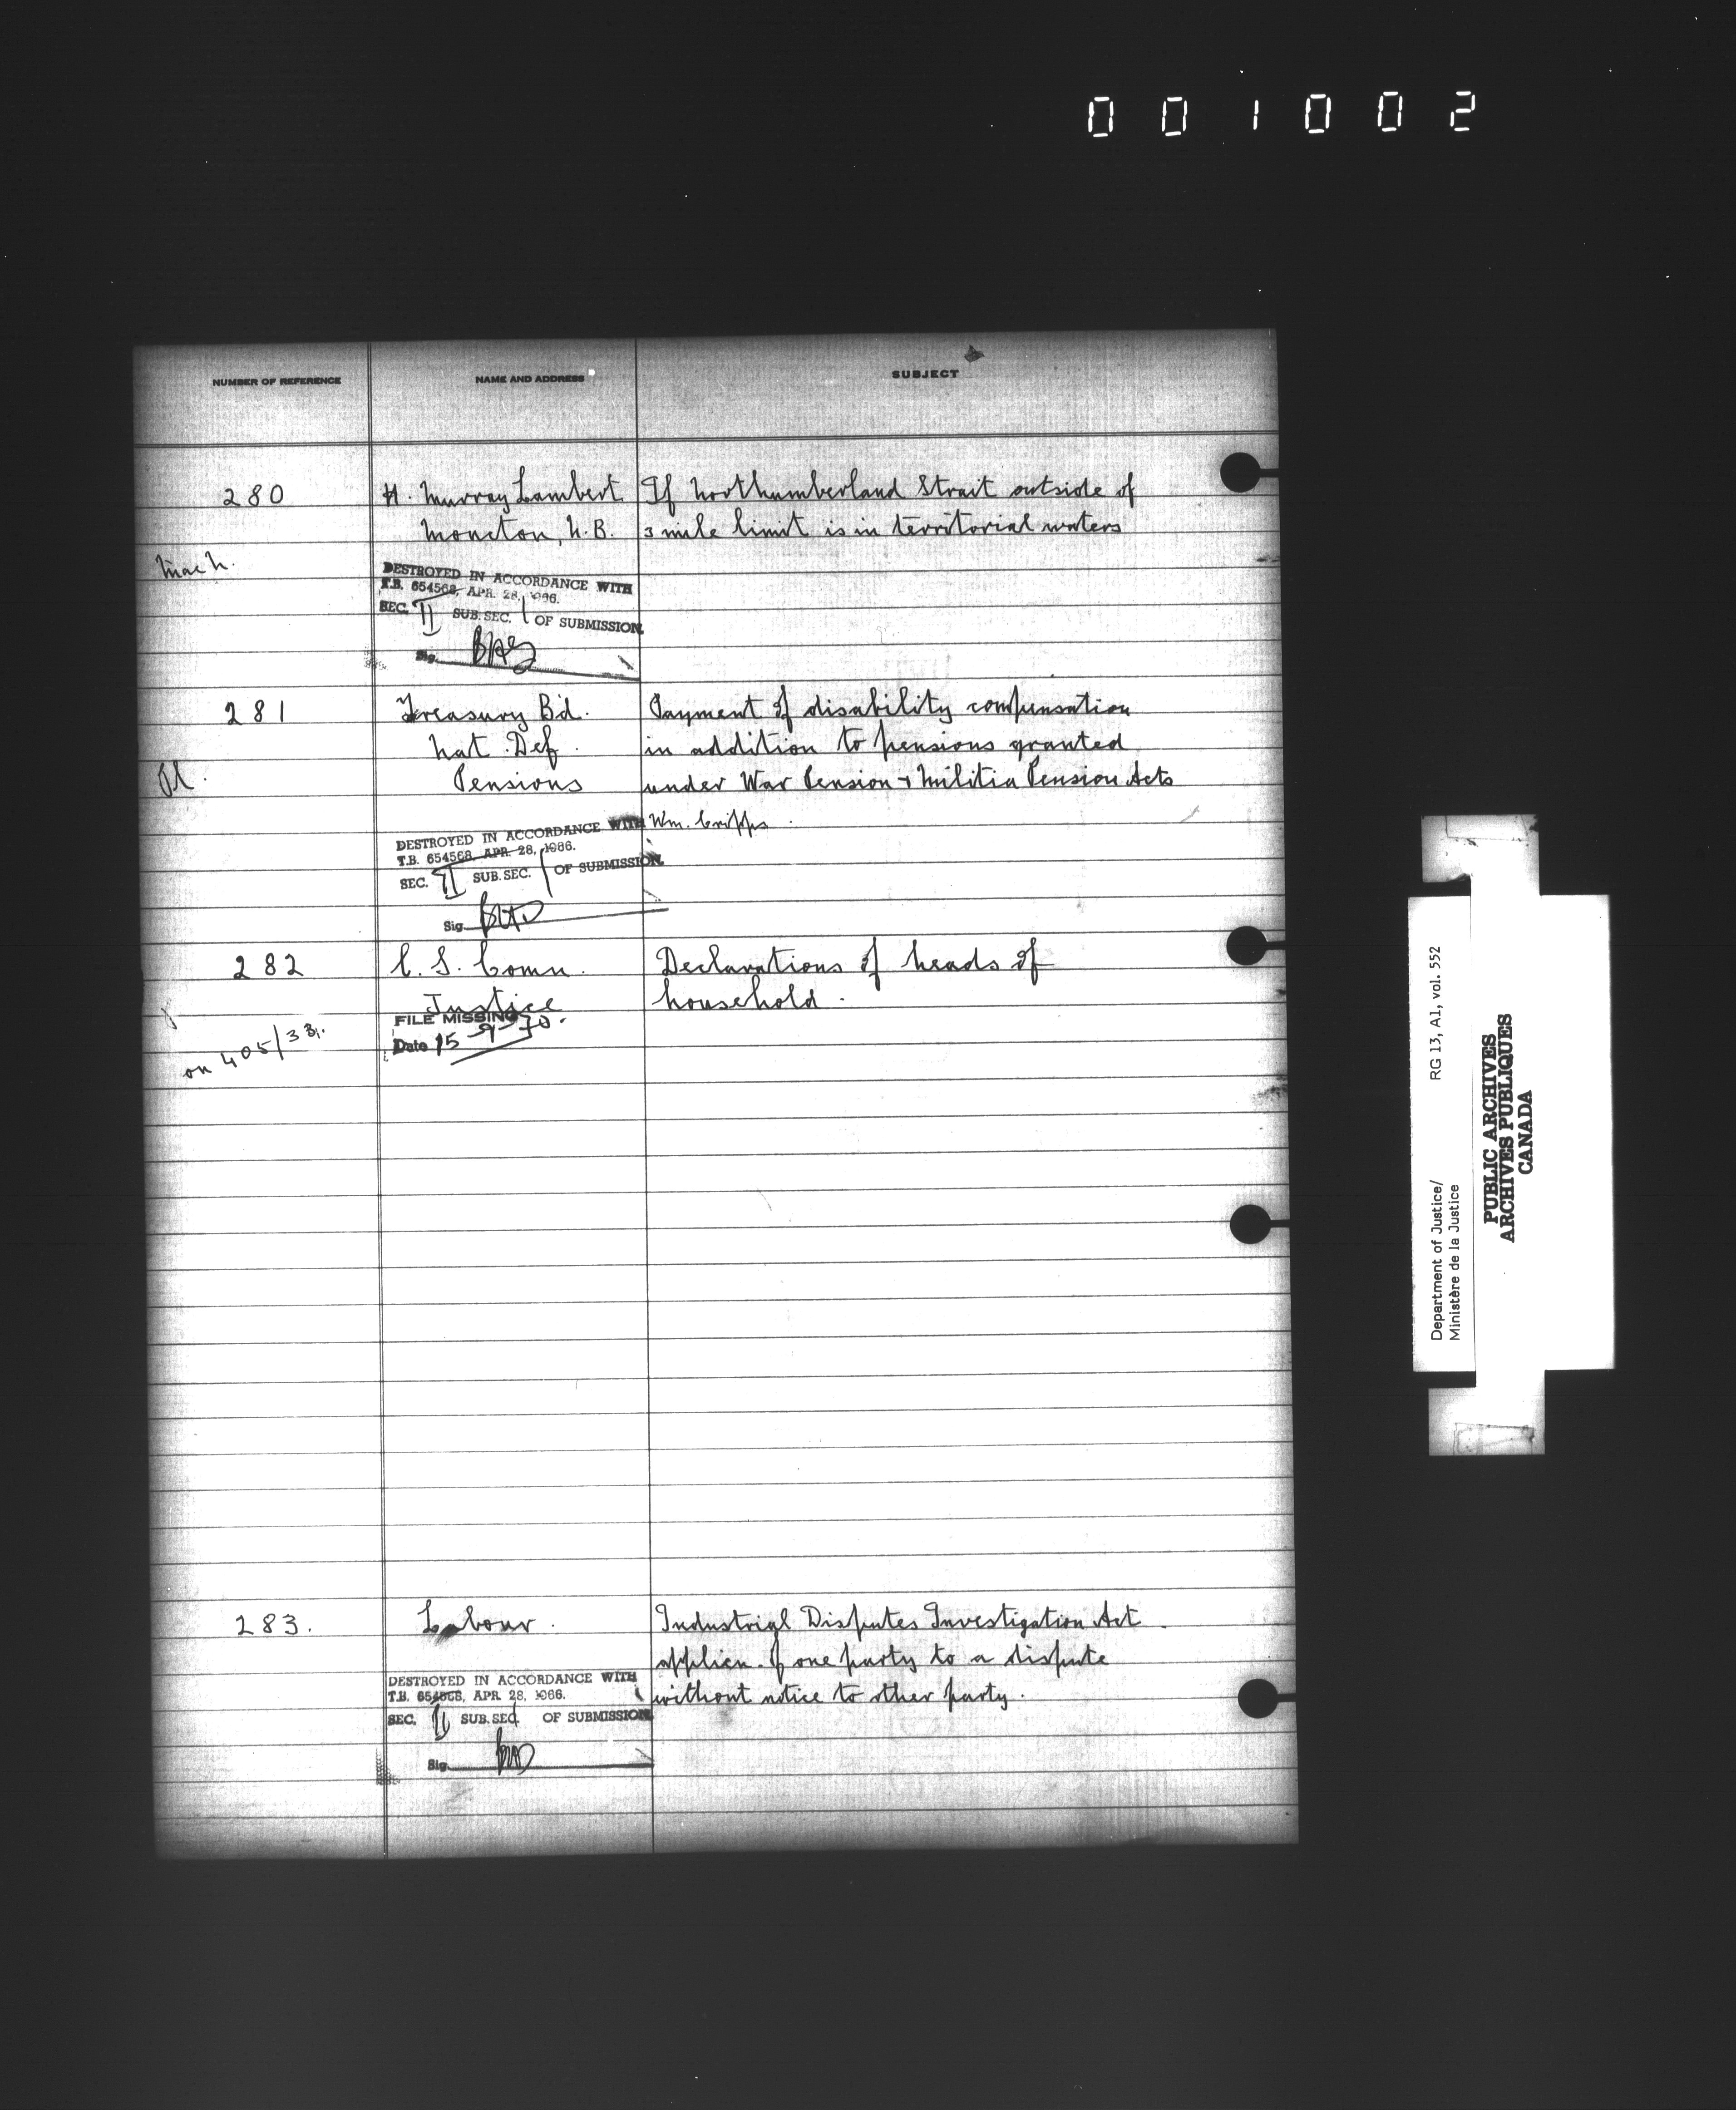 001002
NUMBER OF REFERENCE NAME AND ADDRESS SUBJECT
280 H. Murray Lambert If Northumberland Strait outside of
Moncton, N.B. 3 mile limit is in territorial waters
Mac N.
DESTROYED IN ACCORDANCE WITH
T.B. 654568, APR. 28, 1966.
SEC. II SUB. SEC. 1 OF SUBMISSION
Sig.
281 Treasury Bd. Payment of disability compensation
Nat. Def. in addition to pensions granted
Pensions under War Pension & Militia Pension Acts
Wm. Cripps.
DESTROYED IN ACCORDANCE WITH
T.B. 654568, APR. 28, 1966.
SEC. II SUB. SEC. 1 OF SUBMISSION
Sig.
282 C. S. Comn. Declarations of heads of
Justice household.
FILE MISSING
Date 15-9-70.
on 405/33.
283. Labour. Industrial Disputes Investigation Act
applicn. of one party to a dispute
without notice to other party.
DESTROYED IN ACCORDANCE WITH
T.B. 654568, APR. 28, 1966.
SEC. II SUB. SEC. 1 OF SUBMISSION
Sig.
Department of Justice/ RG 13, A1, vol. 552
Ministère de la Justice
PUBLIC ARCHIVES
ARCHIVES PUBLIQUES
CANADA